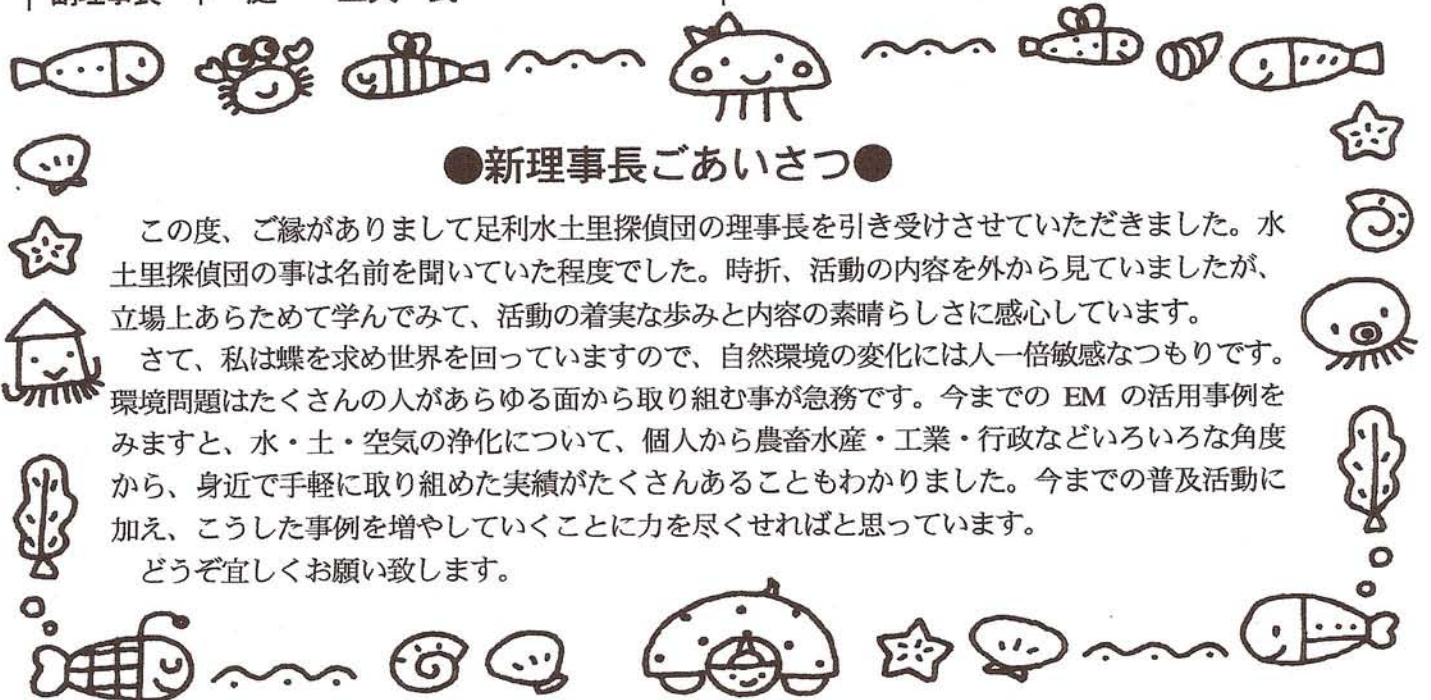 ●新理事長ごあいさつ●
この度、ご縁がありまして足利水土里探偵団の理事長を引き受けさせていただきました。水
土里探偵団の事は名前を聞いていた程度でした。時折、活動の内容を外から見ていましたが、
立場上あらためて学んでみて、活動の着実な歩みと内容の素晴らしさに感心しています。
さて、私は蝶を求め世界を回っていますので、自然環境の変化には人一倍敏感なつもりです。
環境問題はたくさんの人があらゆる面から取り組む事が急務です。今までの EM の活用事例を
みますと、水・土・空気の浄化について、個人から農畜水産・工業・行政などいろいろな角度
から、身近で手軽に取り組めた実績がたくさんあることもわかりました。今までの普及活動に
加え、こうした事例を増やしていくことに力を尽くせればと思っています。
どうぞ宜しくお願い致します。